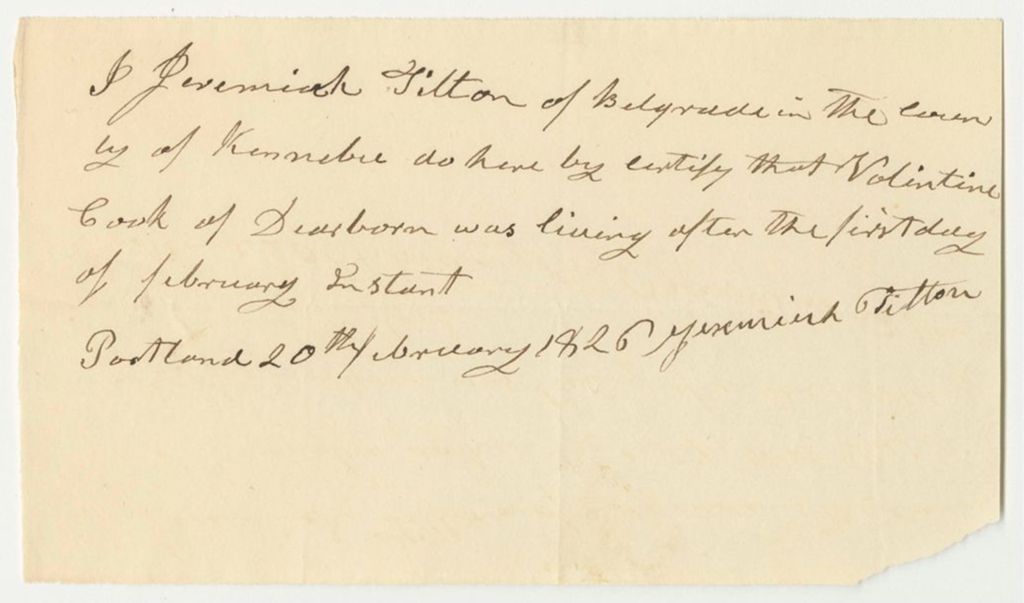 I Jeremiah Tilton of Belgrade in the coun
ty of Kennebec do here by certify that Volintine
Cook of Dearborn was living after the first day
of february Instant
Portland 20th february 1826 Jeremiah Tilton